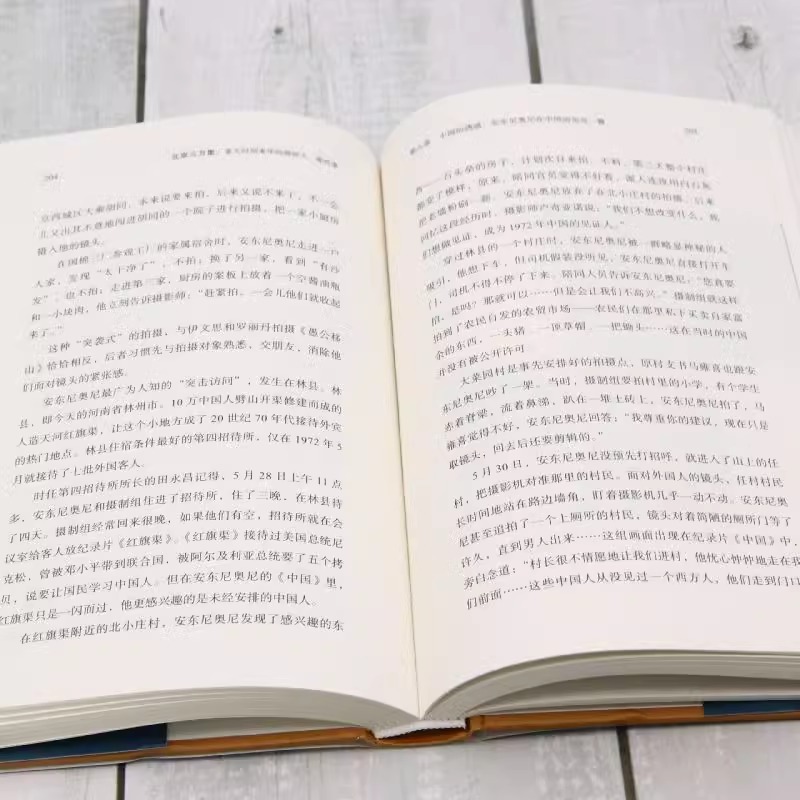 204
京西城区大乘胡同，本来说要来拍，后来又说不来了，不一会
儿又出其不意地闯进胡同的一个院子进行拍摄，把一家小厨房
摄入他的镜头。
在国棉（一参观工）的家属宿舍时，安东尼奥尼走进一户
人家，发现“太干净了”，不拍；换了另一家，看到“有沙
发”，也不拍；走进第三家，厨房的案板上放着一个空酱油瓶
和一小块肉，他立刻告诉摄影师：“赶紧拍，一会儿他们就收起
来了。”
这种“突袭式”的拍摄，与伊文思和罗丽丹拍摄《愚公移
山》恰恰相反，后者习惯先与拍摄对象熟悉、交朋友，消除他
们面对镜头的紧张感。
安东尼奥尼最广为人知的“突击访问”，发生在林县。林
县，即今天的河南省林州市。10 万中国人劈山开渠修建而成的
人造天河红旗渠，让这个小地方成了 20 世纪 70 年代接待外宾
的热门地点。林县住宿条件最好的第四招待所，仅在 1972 年 5
月就接待了七批外国客人。
时任第四招待所所长的田永昌记得，5 月 28 日上午 11 点
多，安东尼奥尼和摄制组住进了招待所，住了三晚，在林县待
了四天。摄制组经常回来很晚，如果他们有空，招待所就在会
议室给客人放纪录片《红旗渠》。《红旗渠》接待过美国总统尼
克松，曾被邓小平带到联合国，被阿尔及利亚总统要了五个拷
贝，说要让国民学习中国人。但在安东尼奥尼的《中国》里，
红旗渠只是一闪而过，他更感兴趣的是未经安排的中国人。
在红旗渠附近的北小庄村，安东尼奥尼发现了感兴趣的东
西——石头垒的房子，计划次日来拍，不料，第二天整个村庄
都变了模样：原来，陪同官员觉得不好看，派人连夜用白石灰
把老墙粉刷一新。安东尼奥尼放弃了在北小庄村的拍摄。后来
回忆这段经历时，摄影师卢奇亚诺说：“我们不想改变什么，我
们想做见证，成为 1972 年中国的见证人。”
穿过林县的一个村庄时，安东尼奥尼被一群略显神秘的人
吸引，他想下车，但司机假装没听见，安东尼奥尼直接打开车
门，司机不得不停了下来。陪同人员告诉安东尼奥尼：“您真要
拍，是吗？那就可以……但是会让我们不高兴。”摄制组就这样
拍到了农民自发的农贸市场——农民们在那里私下买卖自家富
余的东西，一头猪、一顶草帽、一把锄头……这在当时的中国
并没有被公开许可。
大菜园村是事先安排好的拍摄点，原村支书马雍喜也跟安
东尼奥尼吵了一架。当时，摄制组要拍村里的小学，有个学生
赤着脊梁，流着鼻涕，趴在一堆土砖上，安东尼奥尼拍了，马
雍喜觉得不好，安东尼奥尼回答：“我尊重你的建议，现在只是
取镜头，回去后还要剪辑的。”
5 月 30 日，安东尼奥尼没预先打招呼，就进入了山上的任
村，把摄影机对准那里的村民。面对外国人的镜头，任村村民
长时间地站在路边墙角，盯着摄影机几乎一动不动。安东尼奥
尼甚至追拍了一个上厕所的村民，镜头对着简陋的厕所门等了
许久，直到男人出来……这组画面出现在纪录片《中国》中，
旁白念道：“村长很不情愿地让我们进村，他忧心忡忡地走在我
们前面……这些中国人从没见过一个西方人，他们走到门口